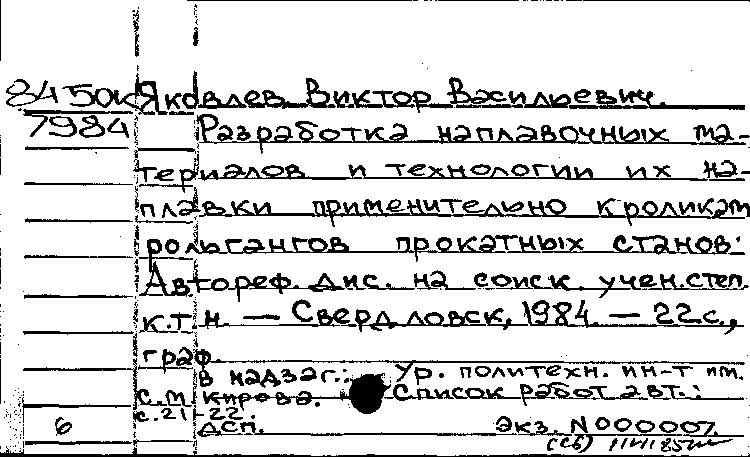 8450к Яковлев Виктор Васильевич.
7984 Разработка наплавочных ма-
териалов и технологии их на-
плавки применительно к роликам
рольгангов прокатных станов:
Автореф. дис. на соиск. учен. степ.
к.т.н. — Свердловск, 1984. — 22с.,
граф.
В надзаг.: Ур. политехн. ин-т им.
С.М. Кирова. Список работ авт.:
с. 21-22.
6 ДСП. Экз. N000007.
(сб)